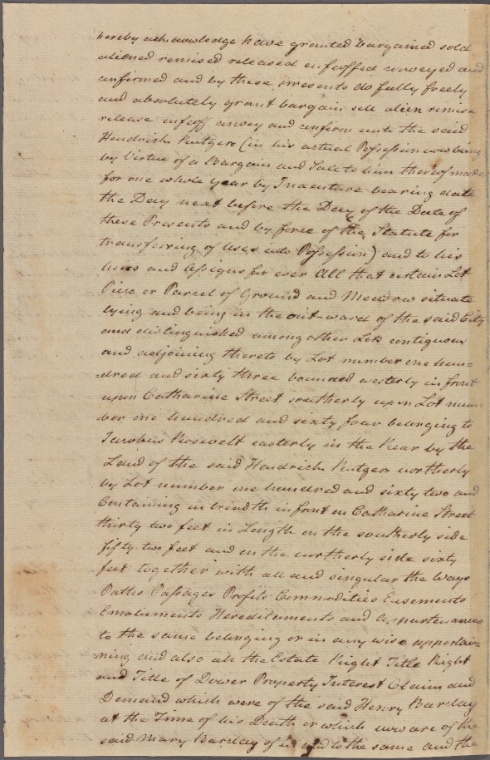 hereby acknowledge have granted bargained sold
aliened remised released enfeoffed conveyed and
confirmed and by these presents do fully freely
and absolutely grant bargain sell alien remise
release enfeoff convey and confirm unto the said
Hendrick Rutgers (in his actual Possession now being
by Virtue of a Bargain and Sale to him thereof made
for one whole year by Indenture bearing date
the Day next before the Day of the Date of
these Presents and by force of the Statute for
transferring of Uses into Possession) and to his
heirs and Assigns for ever All that certain Lot
Piece or Parcel of Ground and Meadow situate
lying and being in the out-ward of the said City
and distinguished among other Lots contiguous
and adjoining thereto by Lot number one hun-
dred and sixty three bounded westerly in front
upon Catharine Street southerly upon Lot num-
ber one hundred and sixty four belonging to
Jacobus Rosevelt easterly in the Rear by the
Land of the said Hendrick Rutgers northerly
by Lot number one hundred and sixty two and
Containing in breadth in front on Catharine Street
thirty two feet in Length on the southerly side
fifty two feet and on the northerly side sixty
feet together with all and singular the Ways
Paths Passages Profits Commodities Easements
Emoluments Hereditaments and Appurtenances
to the same belonging or in any wise appertai-
ning and also all the Estate Right Title Right
and Title of Dower Property Interest Claim and
Demand which were of the said Henry Barclay
at the Time of his Death or which now are of the
said Mary Barclay of in and to the same and the